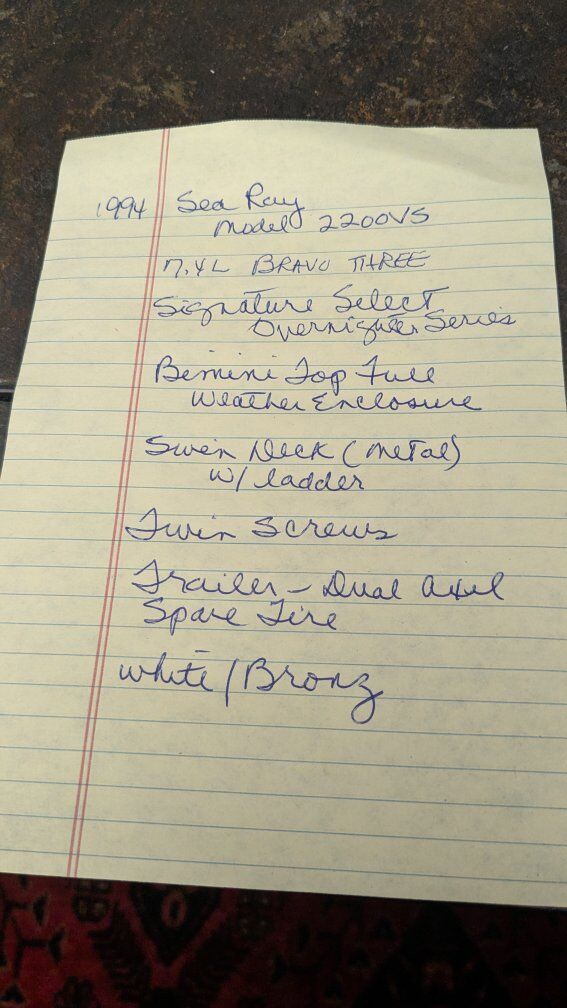 1994 Sea Ray
Model 2200VS
7.4L BRAVO THREE
Signature Select
Overnighter Series
Bemini Top Full
Weather Enclosure
Swim Deck (metal)
w/ ladder
Twin Screws
Trailer - Dual Axel
Spare Tire
white/Bronz